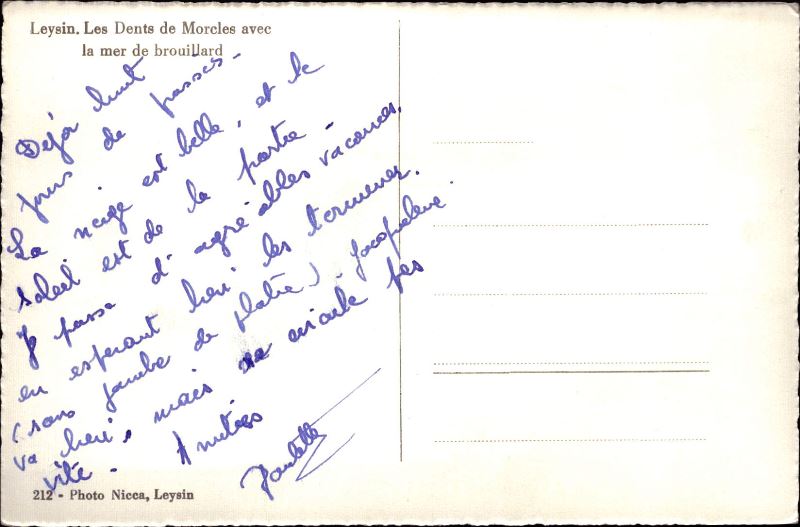 Leysin. Les Dents de Morcles avec
la mer de brouillard
Déjà huit
jours de passés -
La neige est belle, et le
soleil est de la partie -
Je passe d'agréables vacances,
en espérant bien les terminer.
(sans jambe de plâtre). Jacqueline
va bien, mais ne skie pas
vite - Amitiés
Paulette
212 - Photo Nicca, Leysin